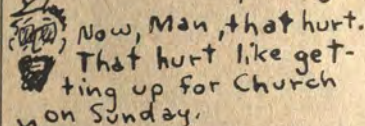 Now, Man, that hurt.
That hurt like get-
ting up for Church
on Sunday.